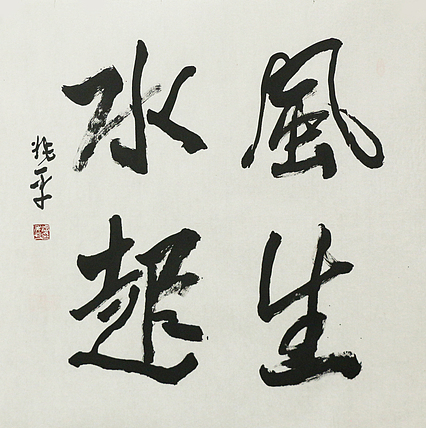 風生
水起
平